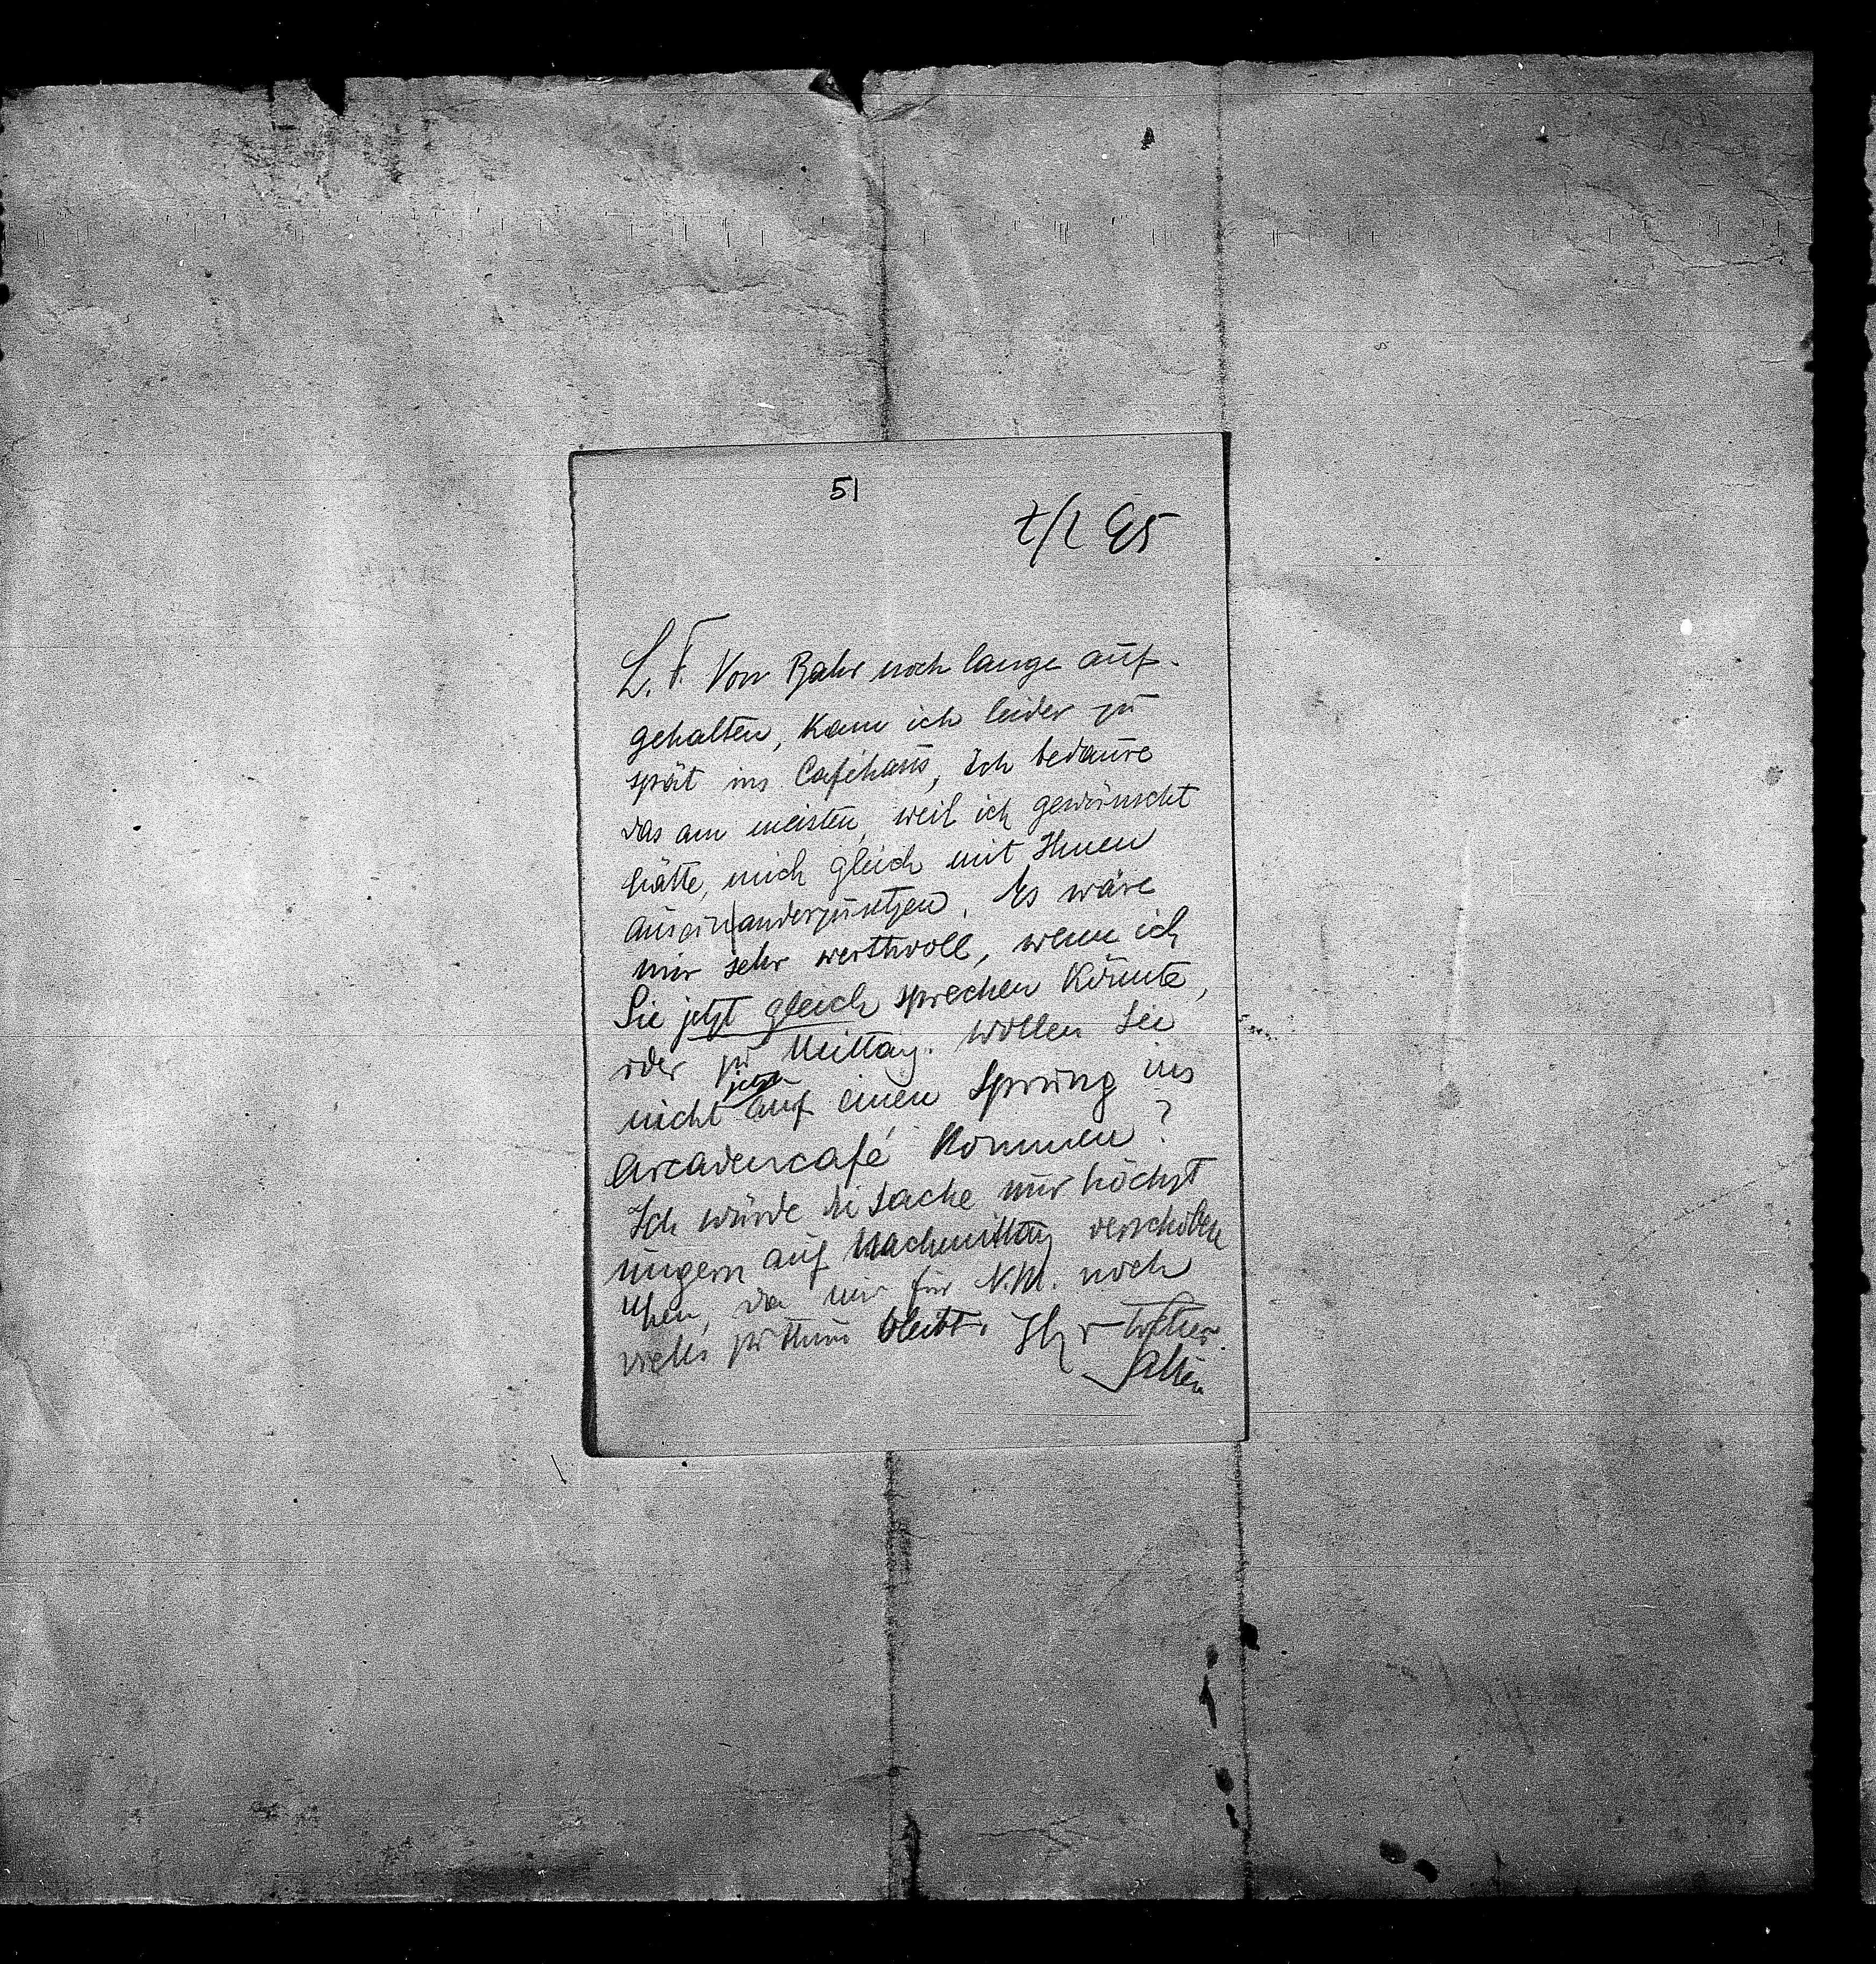 51
7/2 95
L. F. Von Bahr noch lange auf-
gehalten, kam ich leider zu
spät ins Caféhaus, Ich bedaure
das am meisten, weil ich gewünscht
hätte, mich gleich mit Ihnen
auseinanderzusetzen. Es wäre
mir sehr werthvoll, wenn ich
Sie jetzt gleich sprechen könnte,
oder zu Mittag. Wollen Sie
jetzt
nicht auf einen Sprung ins
Arcadencafé kommen?
Ich würde die Sache nur höchst
ungern auf Nachmittag verschoben
sehen, da mir für N.M. noch
vieles zu thun bleibt. Ihr
Salten